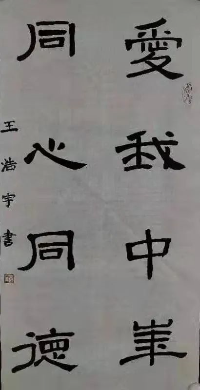 愛我中華
同心同德
王浩宇書